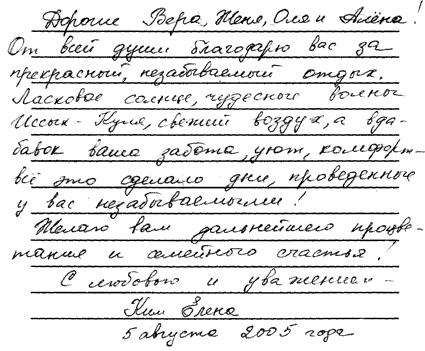 Дорогие Вера, Женя, Оля и Алёна!
От всей души благодарю вас за
прекрасный, незабываемый отдых.
Ласковое солнце, чудесные волны
Иссык-Куля, свежий воздух, а вда-
бавок ваша забота, уют, комфорт-
всё это сделало дни, проведенные
у вас незабываемыми!
Желаю вам дальнейшего процве-
тания и семейного счастья!
С любовью и уважением -
Ким Елена
5 августа 2005 года